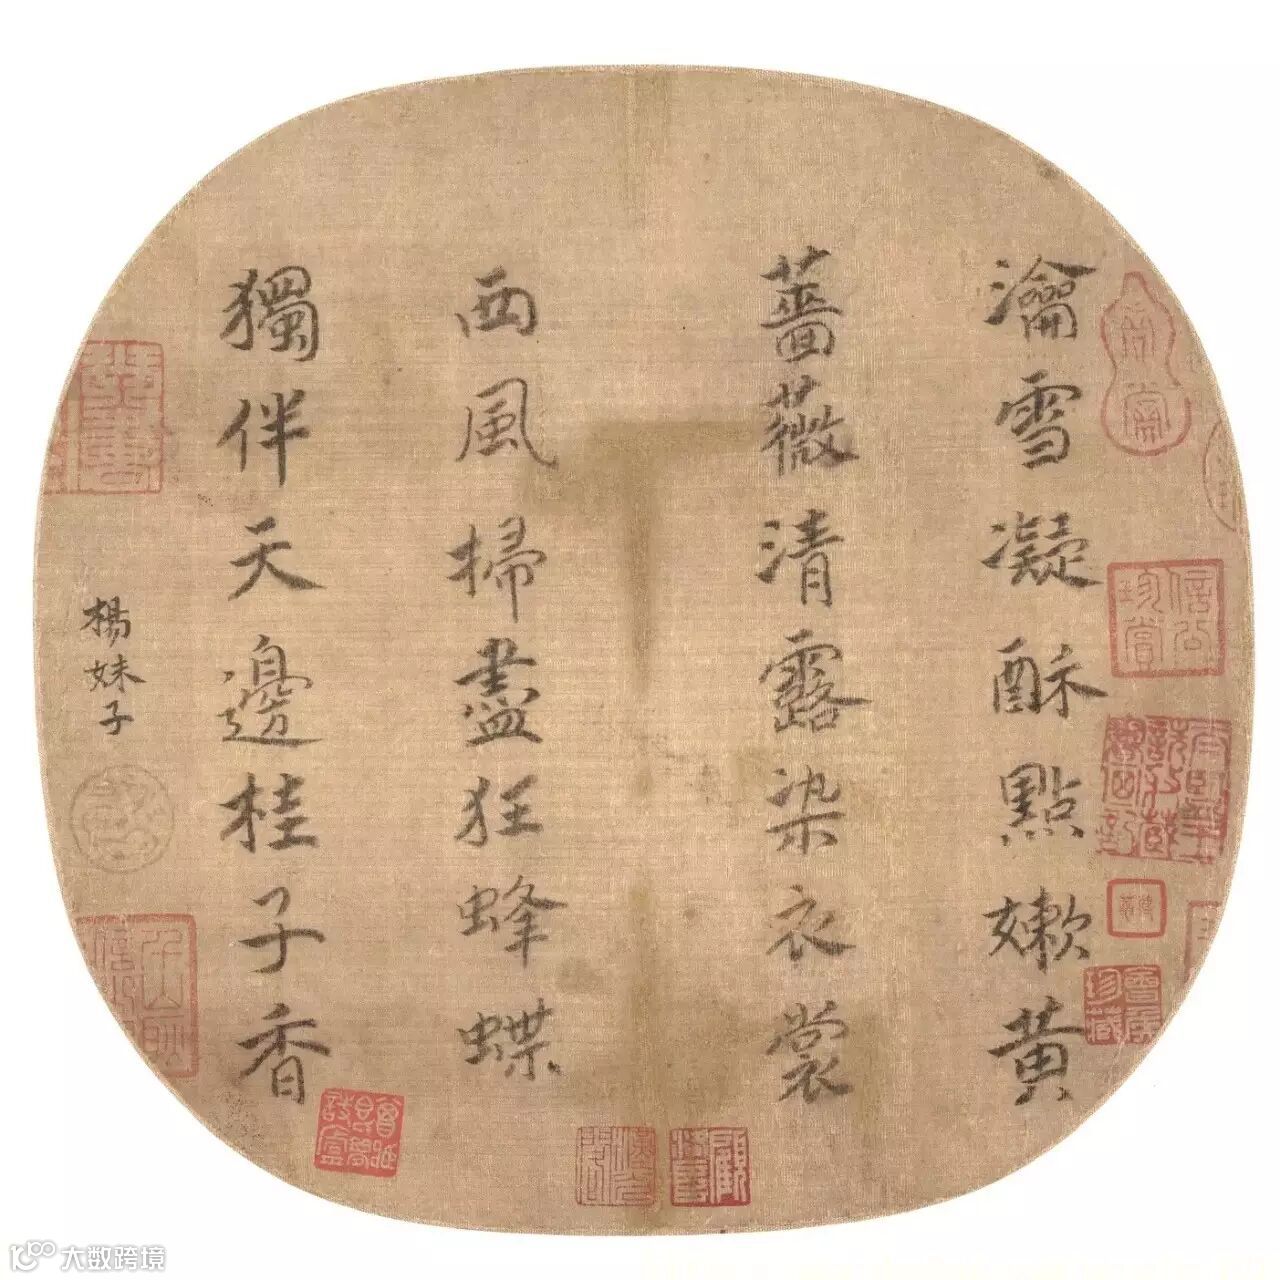 瀹雪凝酥點嫰黄
薔薇清露染衣裳
西風掃盡狂蜂蝶
獨伴天邊桂子香
楊妹子
信公珍賞
大数跨境